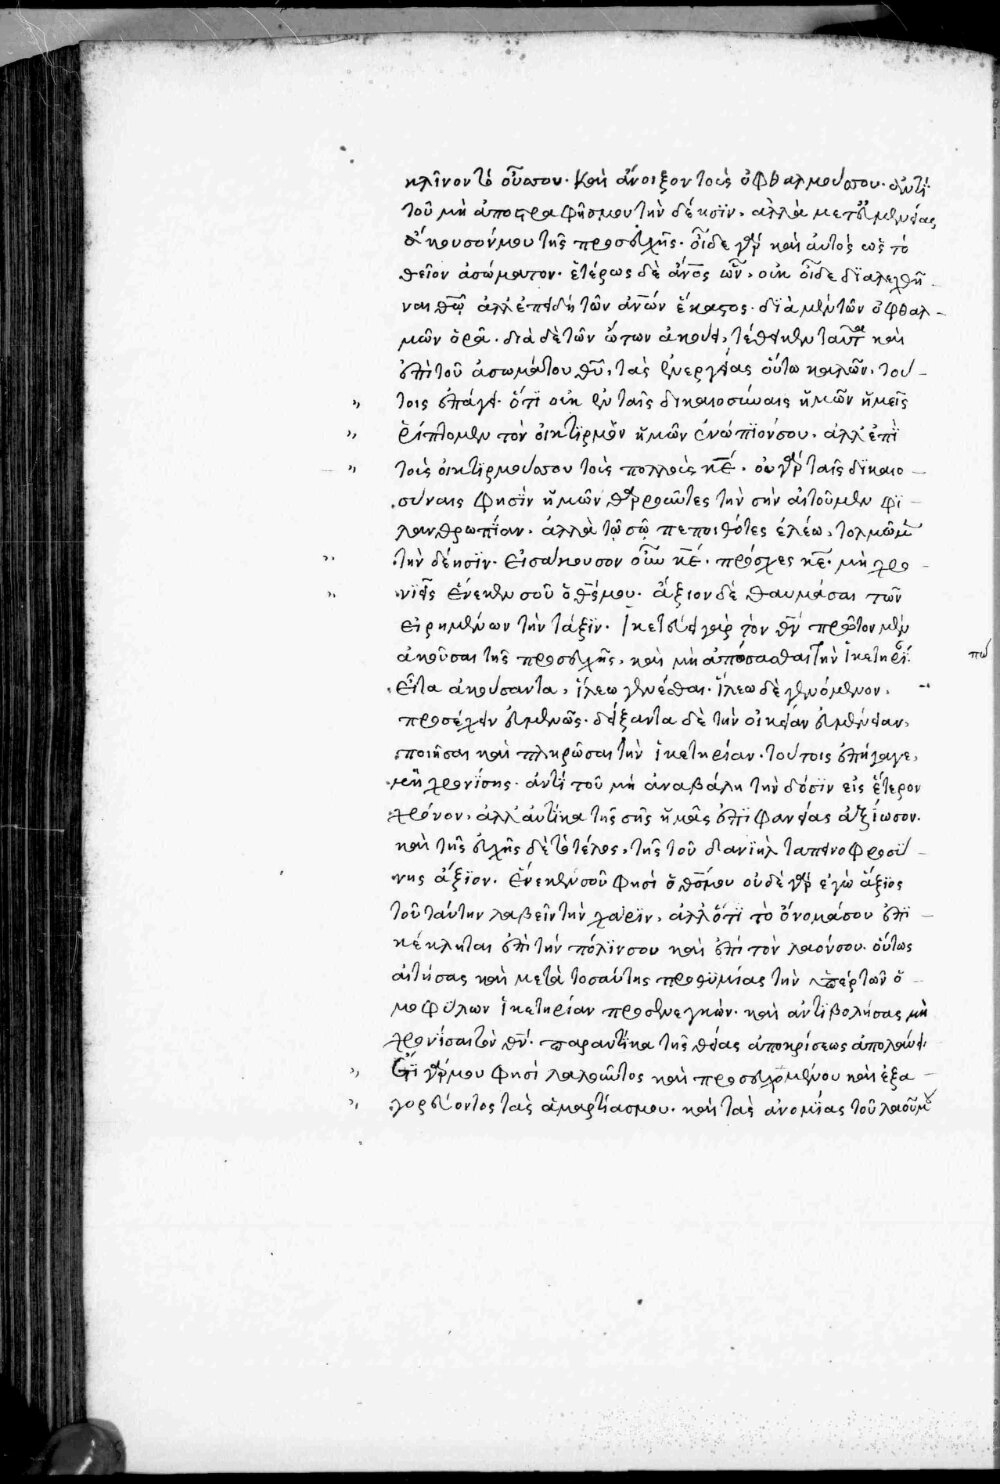 κλῖνον τὸ οὖσσου· καὶ ἄνοιξον τοὺς ὀφθαλμούσσου· ἀντὶ
τοῦ μὴ ἀποστραφῇς μου τὴν δέησϊν, ἀλλὰ μετ' εὐμενείας
ἄκουσόν μου τῆς προσευχῆς· οἶδε γὰρ καὶ αὐτὸς ὡς τὸ
θεῖον ἀσώματον· ἑτέρως δὲ ἀνος ὢν, οὐκ οἶδε διαλεχθῆ
ναι θῶ ἀλλ' ἐπειδὴ τῶν ἀνων ἕκαστος· διὰ μὲν τῶν ὀφθαλ
μῶν ὁρᾶ· διὰ δὲ τῶν ὤτων ἀκούει, τέθεικεν ταῦτα καὶ
ἐπὶ τοῦ ἀσωμάτου θυ, τὰς ἐνεργείας οὕτω καλῶν, τού
τοις ἐπάγει· ὅτϊ οὐκ ἐν ταῖς δικαιοσύναις ἡμῶν ἡμεῖς
ῥίπτομεν τὸν οἰκτϊρμὸν ἡμῶν ἐνώπϊόν σου· ἀλλ' ἐπῒ
τοὺς οἰκτϊρμούσσου τοὺς πολλοὺς κε· οὐ γὰρ ταῖς δϊκαιο
σύναις φησῒν ἡμῶν θαρροῦντες τὴν σὴν αἰτοῦμεν φϊ
λανθρωπΐαν· ἀλλὰ τῷ σῷ πεποιθότες ἐλέω, τολμῶμεν
τὴν δέησϊν· εἰσάκουσον οὖν κε· πρόσχες κε· μὴ χρο
νϊεῖς ἕνεκεν σοῦ ὁ θς μου· ἄξιον δὲ θαυμάσαι τῶν
εἰρημένων τὴν τάξϊν· ἱκετεύει γὰρ τὸν θν πρῶτον μὲν
ἀκοῦσαι τῆς προσευχῆς, καὶ μὴ ἀπώσασθαι τὴν ἱκετηρί·
εἶτα ἀκούσαντα, ἵλεω γενέσθαι· ἵλεω δὲ γενόμενον,
προσέχειν εὐμενῶς· δείξαντα δὲ τὴν οἰκείαν εὐμένειαν,
ποιῆσαι καὶ πληρῶσαι τὴν ἱκετηρίαν· τούτοις ἐπήγαγε,
μὴ χρονίσης· ἀντὶ τοῦ μὴ ἀναβάλη τὴν δόσϊν εἰς ἕτερον
χρόνον, ἀλλ' αὐτίκα τῆς σῆς ἡμᾶς ἐπϊφανείας ἀξΐωσον·
καὶ τῆς εὐχῆς δὲ τὸ τέλος, τῆς τοῦ δανϊὴλ ταπεινοφροσύ
νης ἄξϊον· ἕνεκεν σοῦ φησὶ ὁ θς μου οὐδὲ γὰρ ἐγὼ ἄξϊος
τοῦ ταύτην λαβεῖν τὴν χάρϊν, ἀλλ' ὅτϊ τὸ ὄνομά σου ἐπϊ
κέκληται ἐπὶ τὴν πόλϊν σου καὶ ἐπὶ τὸν λαόν σου· οὕτως
αἰτήσας καὶ μετὰ τοσαύτης προθυμίας τὴν ὑπὲρ τῶν ὁ
μοφύλων ἱκετηρίαν προσενεγκών· καὶ ἀντϊβολήσας μὴ
χρονίσαι τὸν θν· παραυτίκα τῆς θείας ἀποκρίσεως ἀπολαύει·
Ἔτϊ γάρ μου φησὶ λαλοῦντος καὶ προσευχομένου καὶ ἐξα
γορεύοντος τὰς ἁμαρτίας μου· καὶ τὰς ἀνομίας τοῦ λαοῦ μου